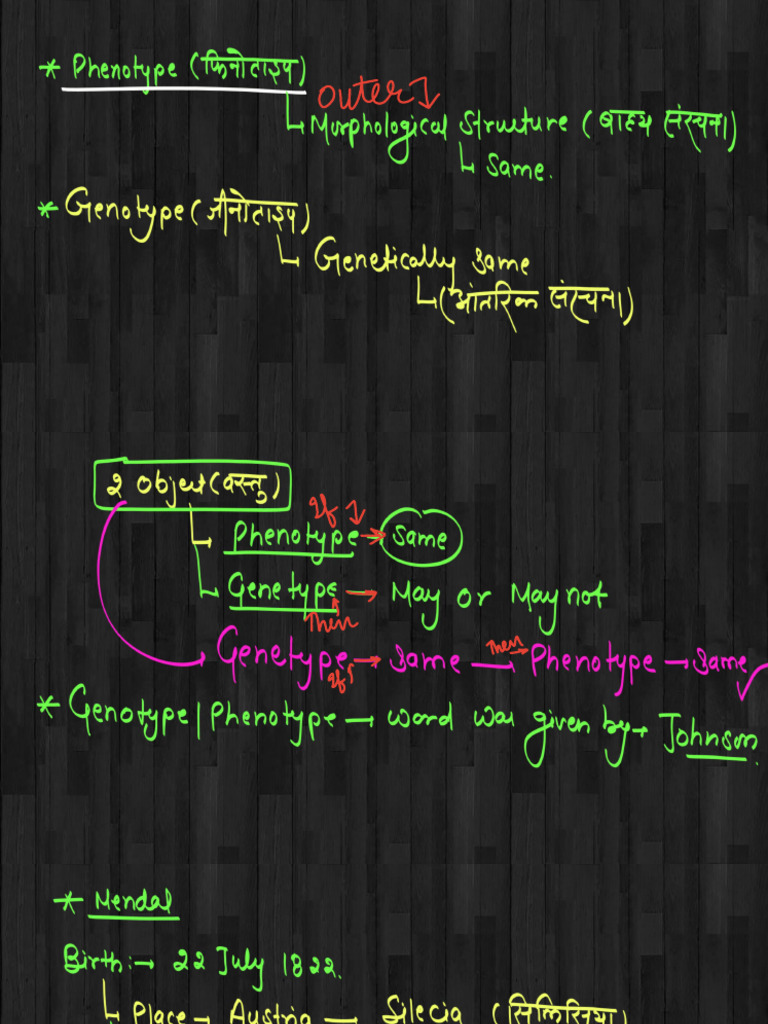 * Phenotype (फिनोटाइप)
outer
Morphological Structure (बाह्य संरचना)
Same.
* Genotype (जीनोटाइप)
Genetically Same
(आंतरिक संरचना)
2 Object (वस्तु)
If
Phenotype → Same
Genetype → May or May not
Then
Genetype → Same → Phenotype → Same
If
Then
* Genotype | Phenotype → word was given by → Johnson.
* Mendal
Birth:→ 22 July 1822.
Place → Austria — Silecia (सिलिसिया)